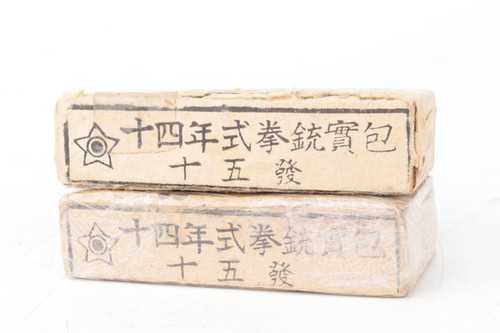 十四年式拳銃實包
十五發
十四年式拳銃實包
十五發